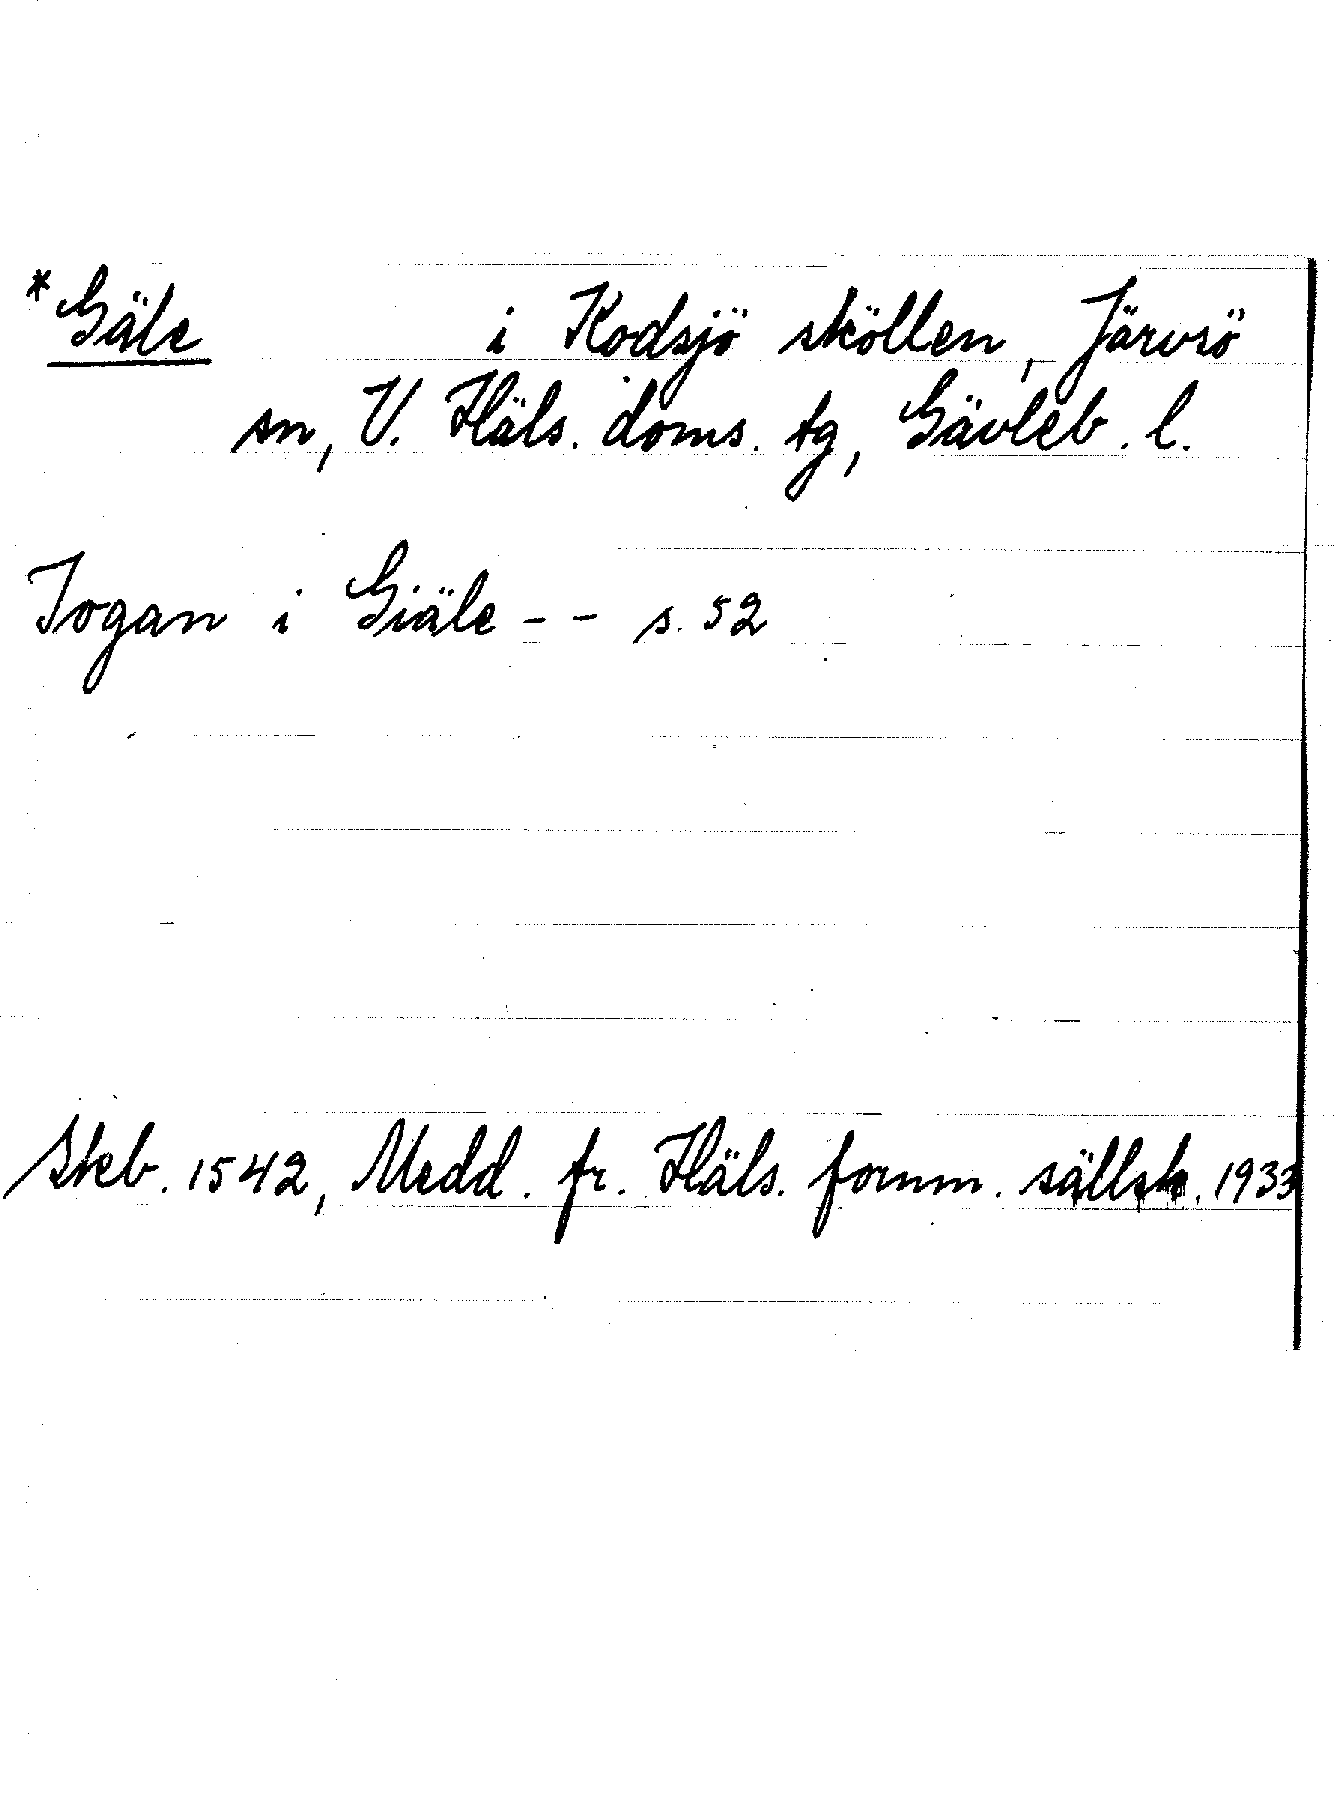 *Gäle i Kodsjö sköllen, Järvsö
sn, V. Häls. doms. tg, Gävleb. l.
Jogan i Giäle -- s. 52
Skeb. 1542, Medd. fr. Häls. fornm. sällsk. 1933